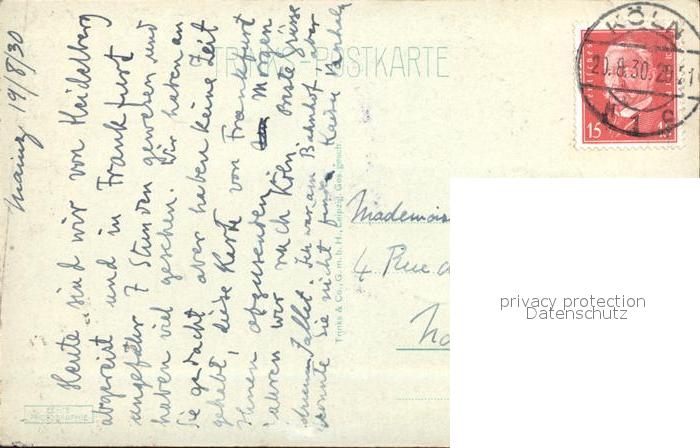 Mainz 19/8/30
Heute sind wir von Heidelberg
abgereist und in Frankfurt
ungefähr 7 Stunden gewesen und
haben viel gesehen. Wir haben an
Sie gedacht aber haben keine Zeit
gehabt, diese Karte von Frankfurt
Ihnen abzusenden. Morgen
fahren wir nach Köln.
Ich war am Bahnhof aber
konnte Sie nicht finden
TRINKS-POSTKARTE
Trinks & Co., G.m.b.H., Leipzig. Ges. gesch.
ECHTE
PHOTOGRAPHIE
KÖLN
20.8.30.20-21
1
15
Mademois
4 Rue
privacy protection
Datenschutz